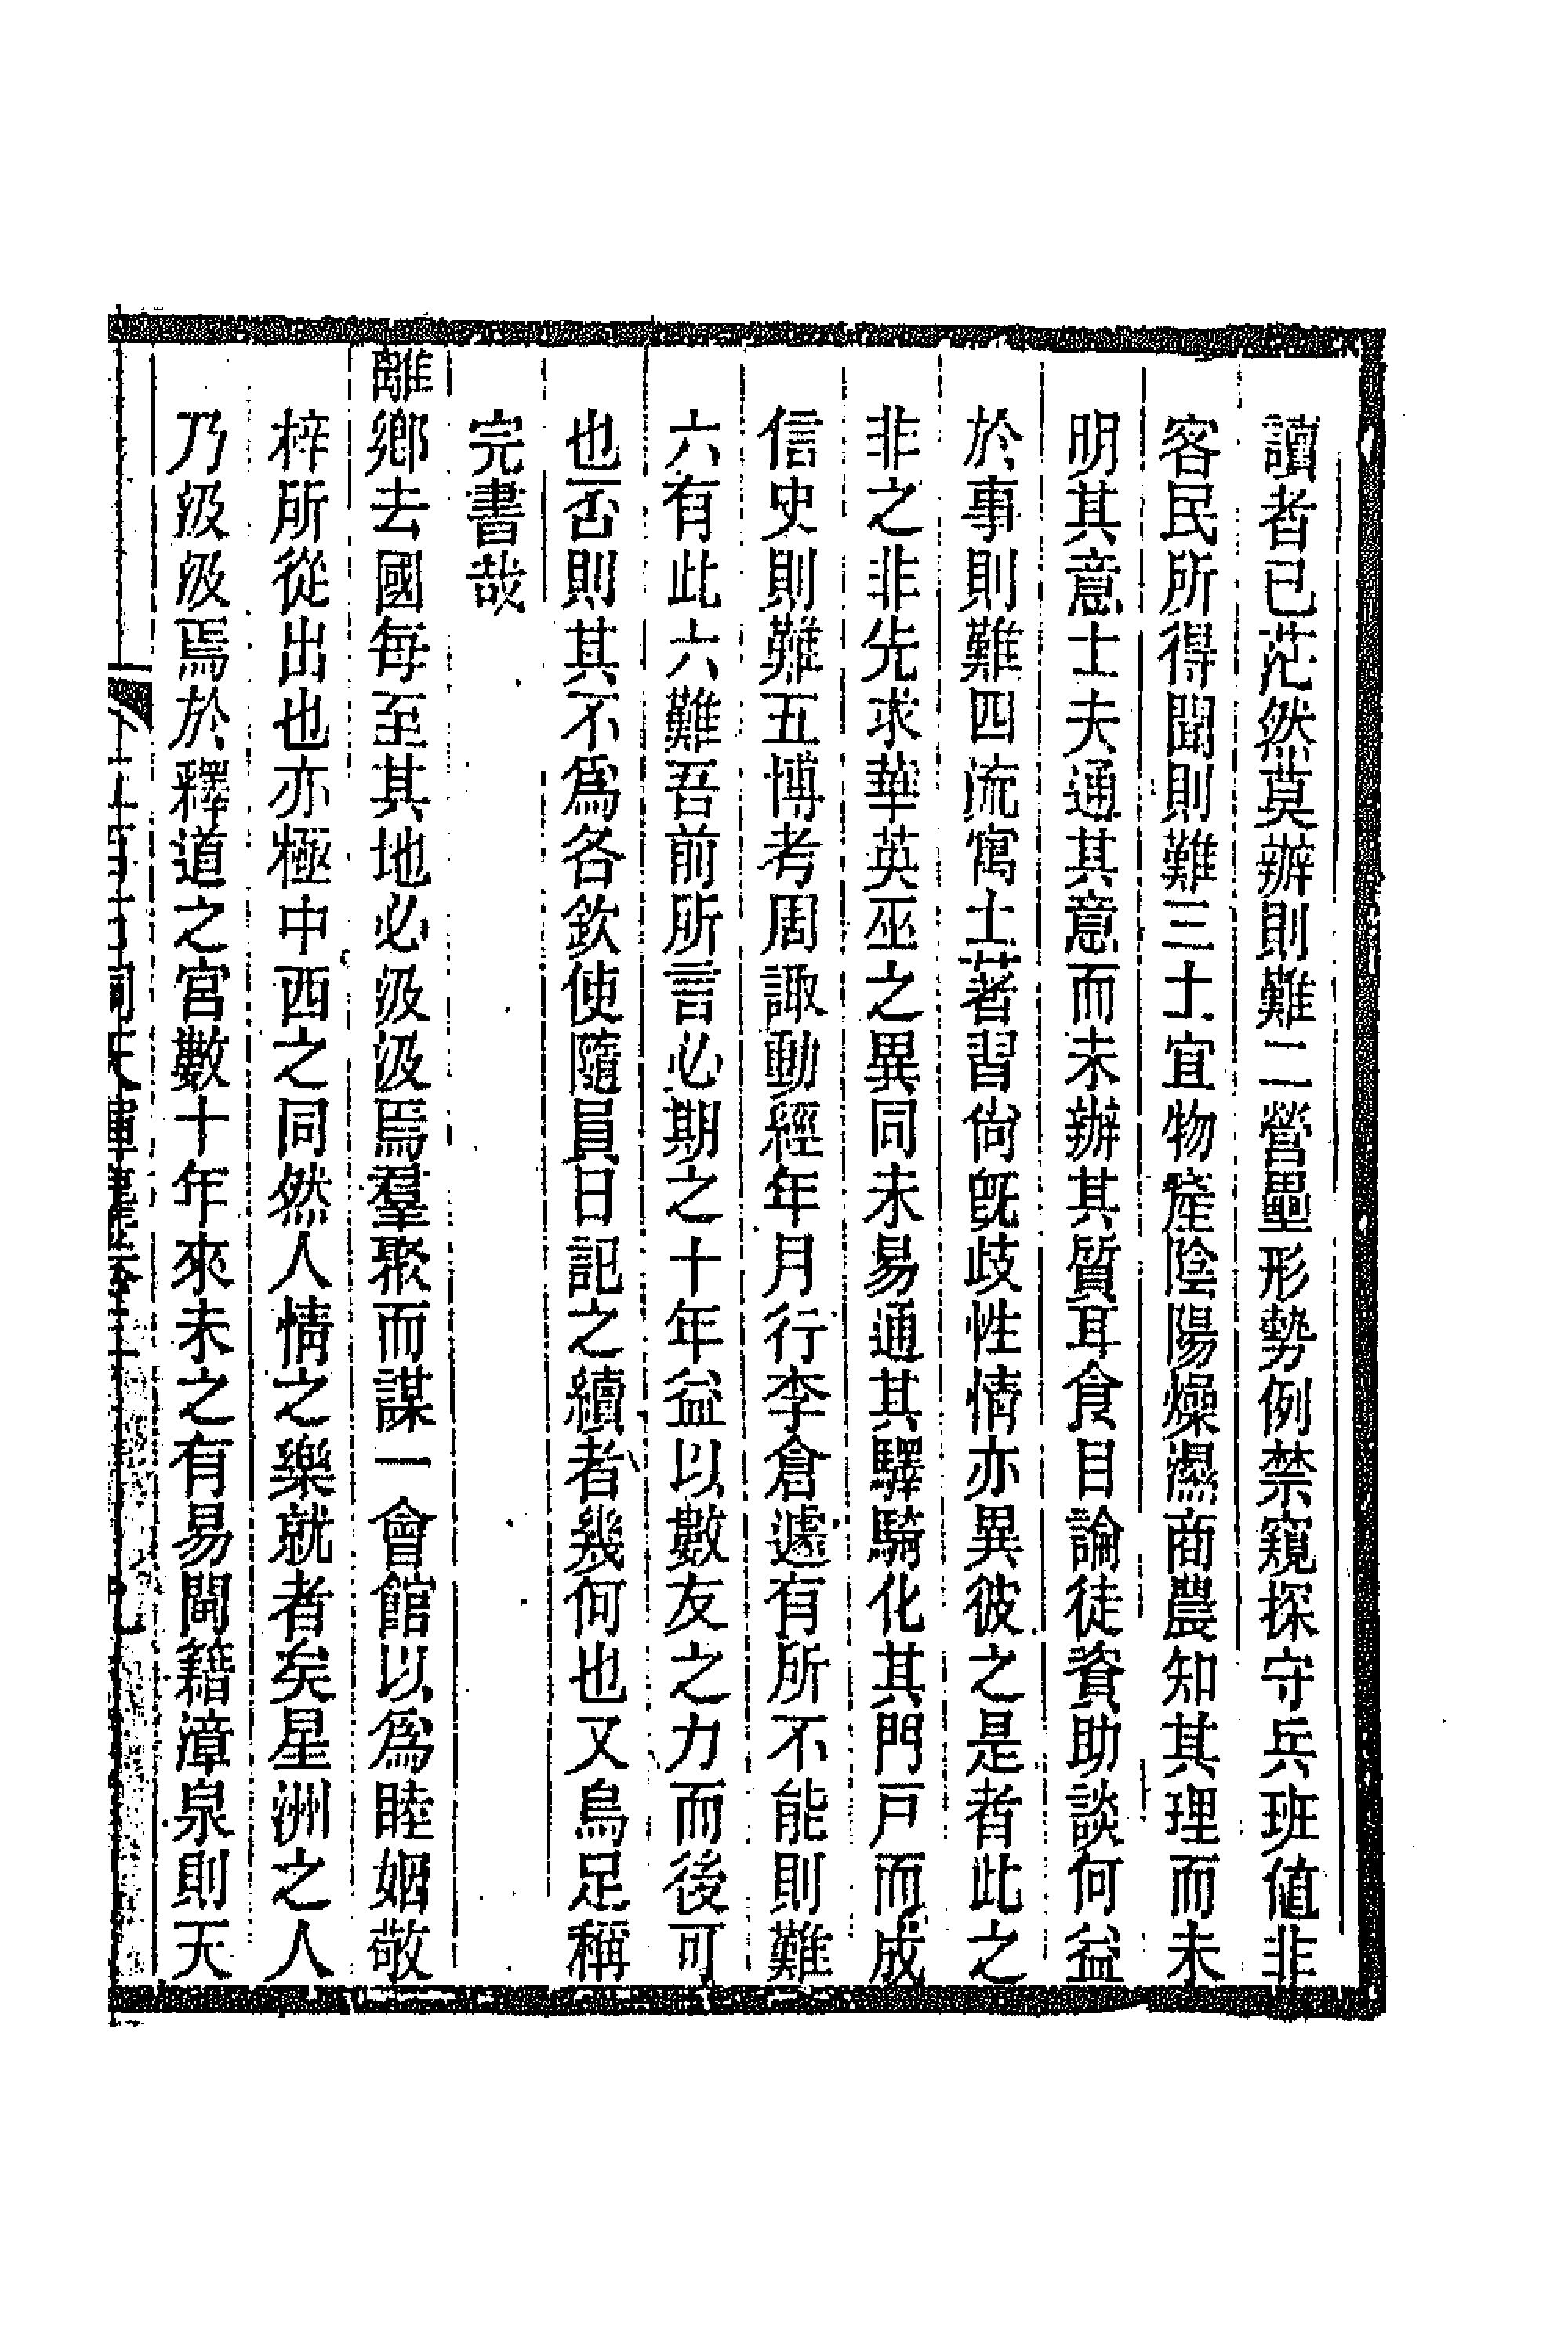 讀者已茫然莫辦則難二營壘形勢例禁窺探守兵班値非
客民所得聞則難三土宜物產陰陽燥濕商農知其理而未
明其意士夫通其意而未辦其質耳食目論徒資助談何益
於事則難四流寓土著習尙旣歧性情亦異彼之是者此之
非之非先求華英巫之異同未易通其驛騎化其門戸而成
信史則難五博考周諏動經年月行李倉遽有所不能則難
六有此六難吾前所言必期之十年益以數友之力而後可
也否則其不爲各欽使隨員日記之續者幾何也又烏足稱
完書哉
離鄉去國每至其地必汲汲焉羣聚而謀一會館以爲睦姻敬
梓所從出也亦極中西之同然人情之樂就者矣星洲之人
乃汲汲焉於釋道之宮數十年來未之有易閩籍漳泉則天